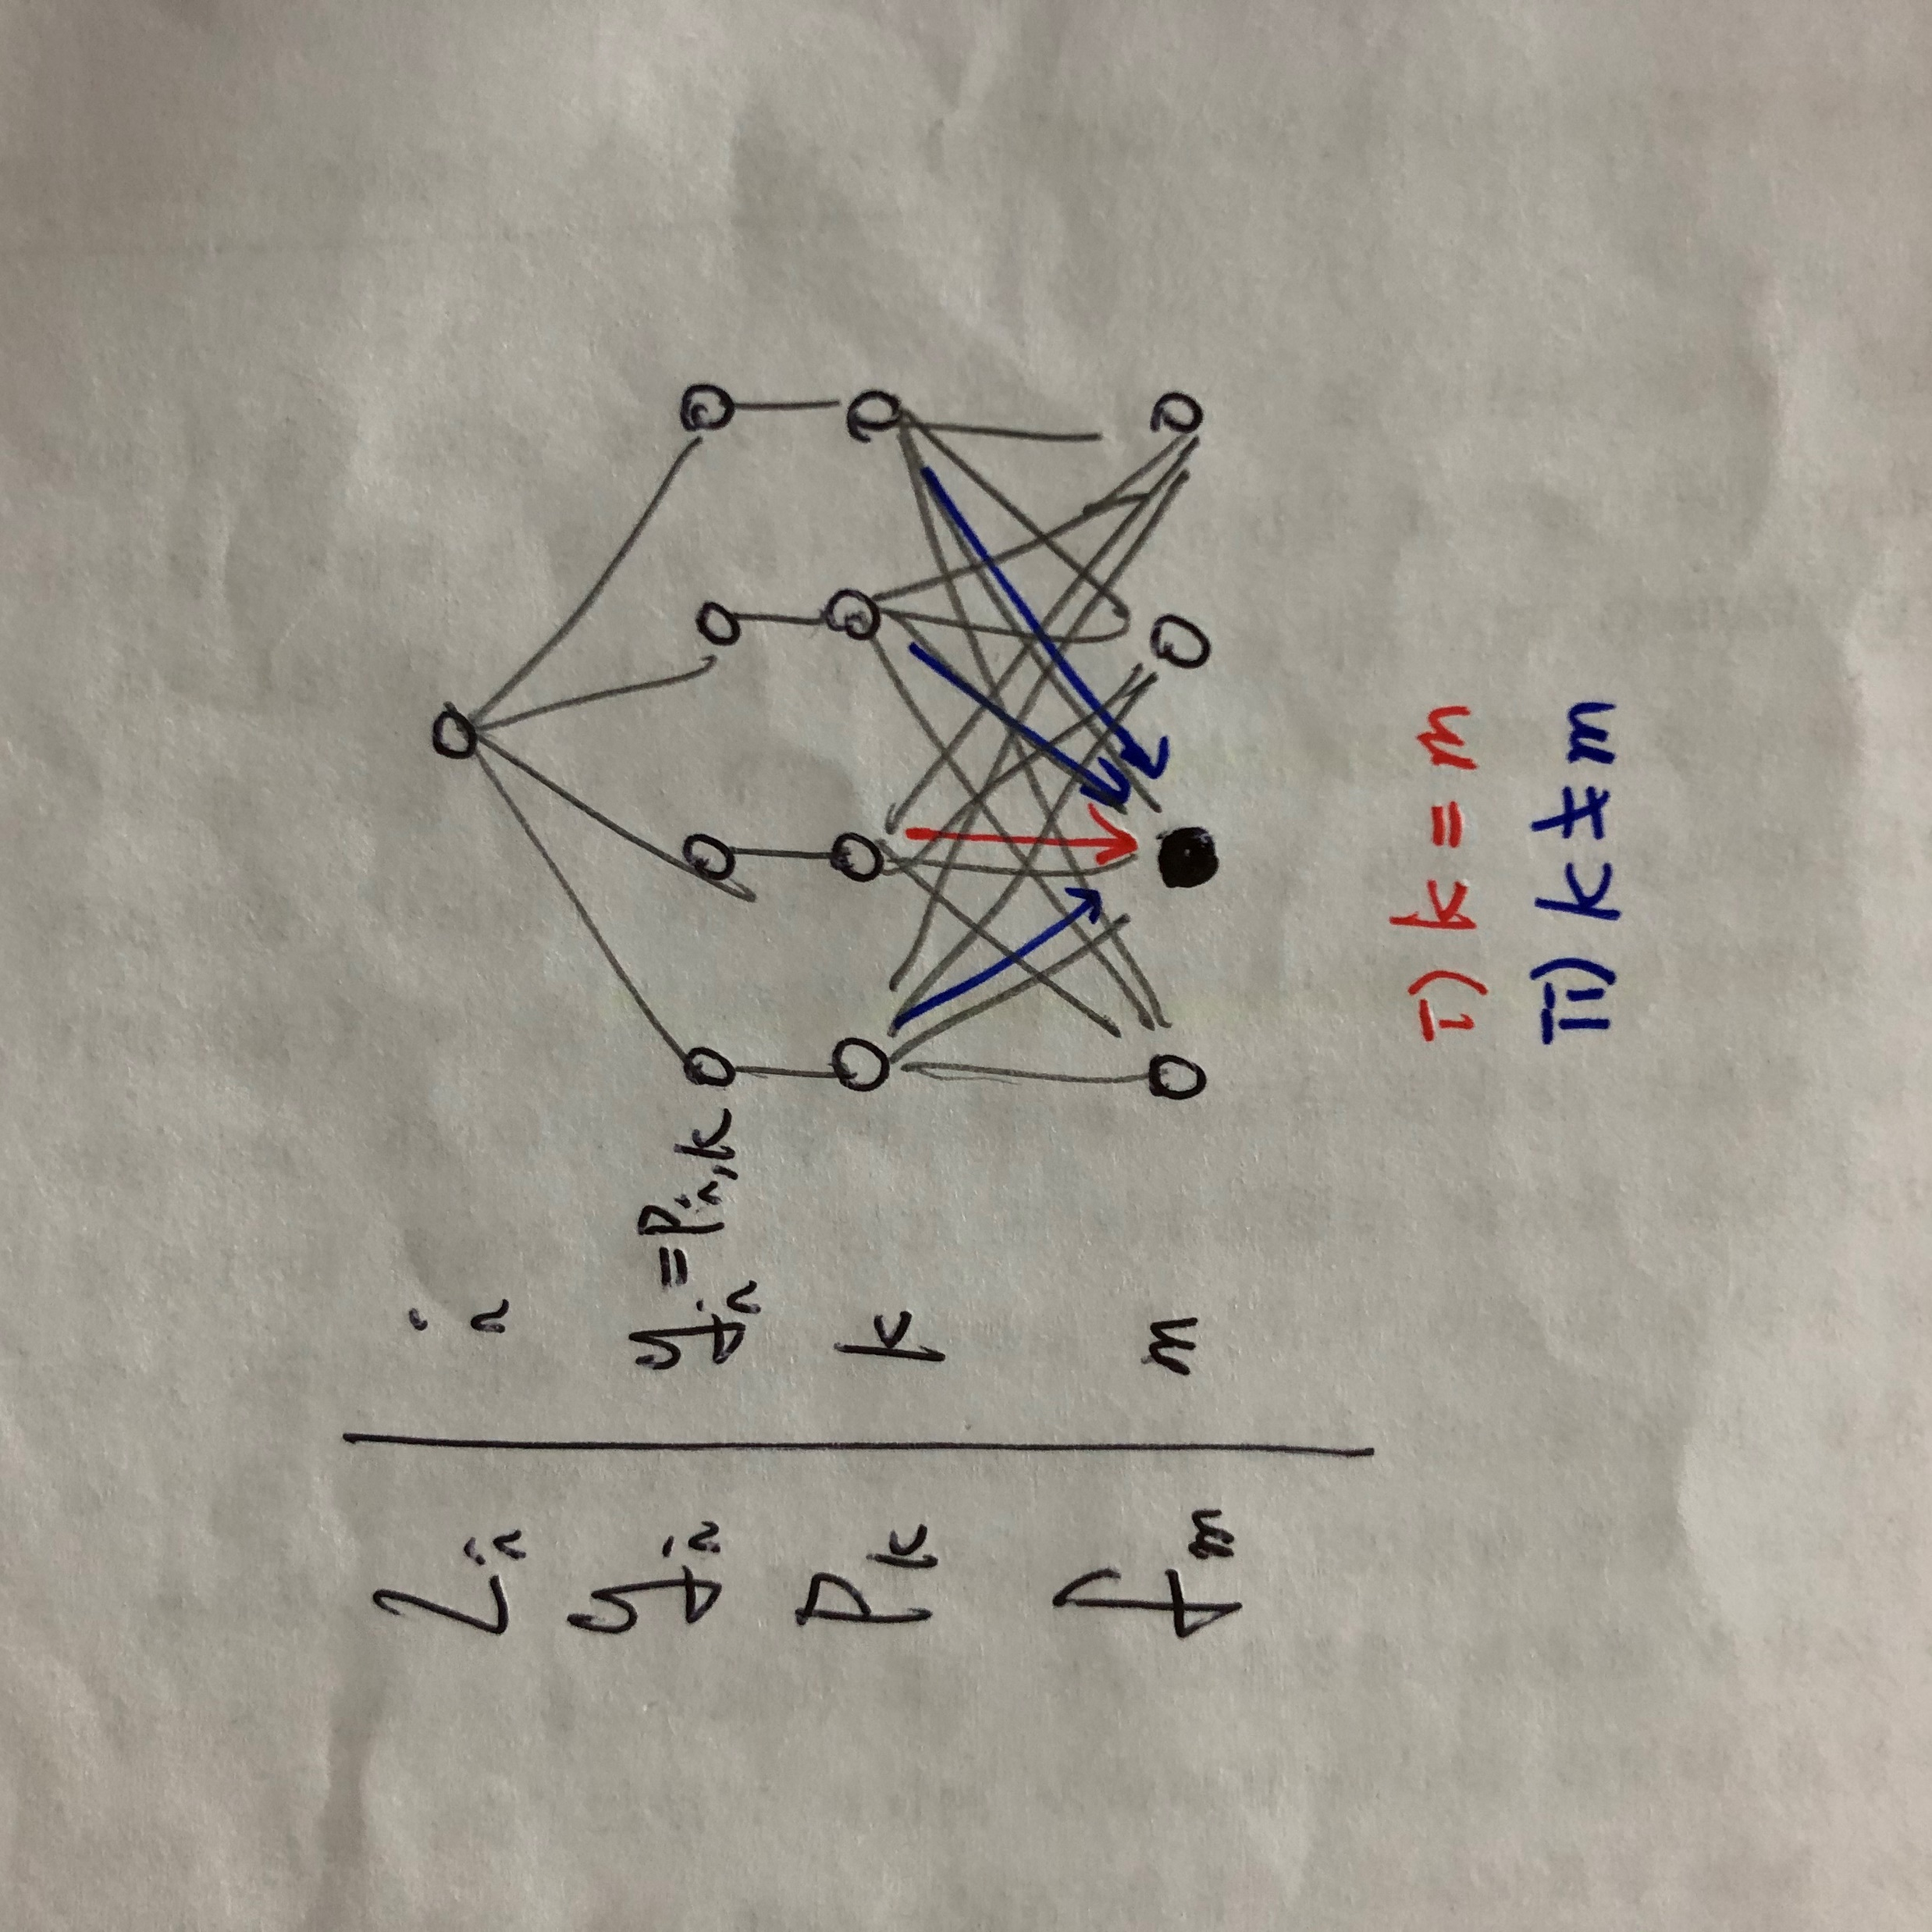 L i i
i i = Pi,k
Pk k
fm m
i) k = m
ii) k ≠ m